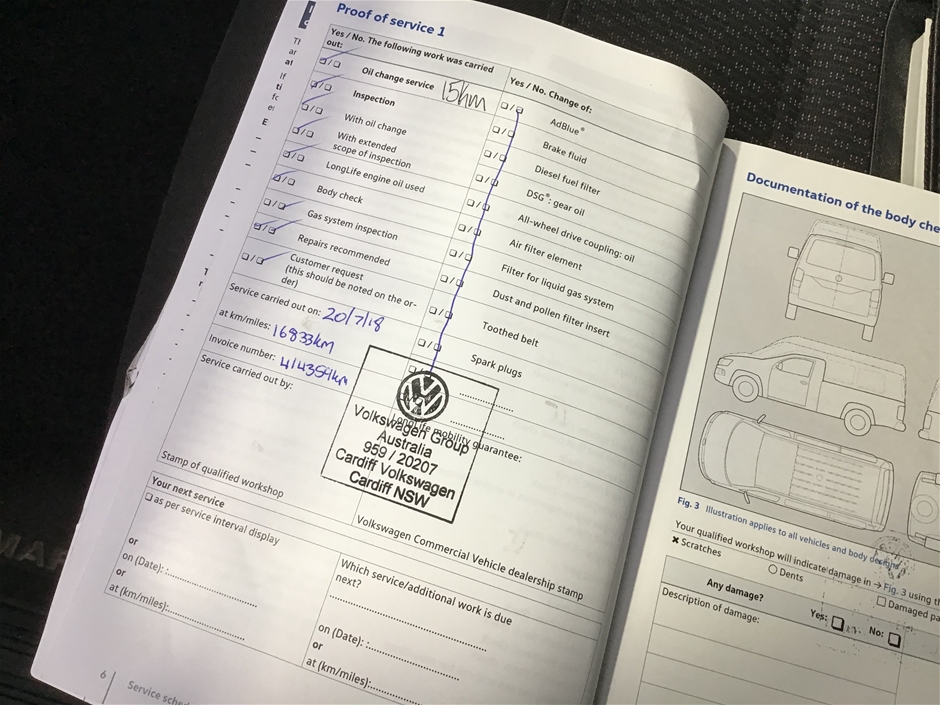 Proof of service 1
Yes / No. The following work was carried out:
Oil change service 15km
Inspection
With oil change
With extended
scope of inspection
LongLife engine oil used
Body check
Gas system inspection
Repairs recommended
Customer request
(this should be noted on the or-
der)
Service carried out on: 20/7/18
at km/miles: 16833km
Invoice number:
Service carried out by:
Stamp of qualified workshop
Yes / No. Change of:
AdBlue®
Brake fluid
Diesel fuel filter
DSG®: gear oil
All-wheel drive coupling: oil
Air filter element
Filter for liquid gas system
Dust and pollen filter insert
Toothed belt
Spark plugs
LongLife mobility guarantee:
Volkswagen Group
Australia
959 / 20207
Cardiff Volkswagen
Cardiff NSW
Volkswagen Commercial Vehicle dealership stamp
Your next service
as per service interval display
or
on (Date):
or
at (km/miles):
Which service/additional work is due
next?
on (Date):
or
at (km/miles):
6
Service
Documentation of the body
Fig. 3 Illustration applies to all vehicles and body designs
Your qualified workshop will indicate damage in → Fig. 3 using
Scratches
Dents
Damaged
Any damage?
Yes:
No:
Description of damage: